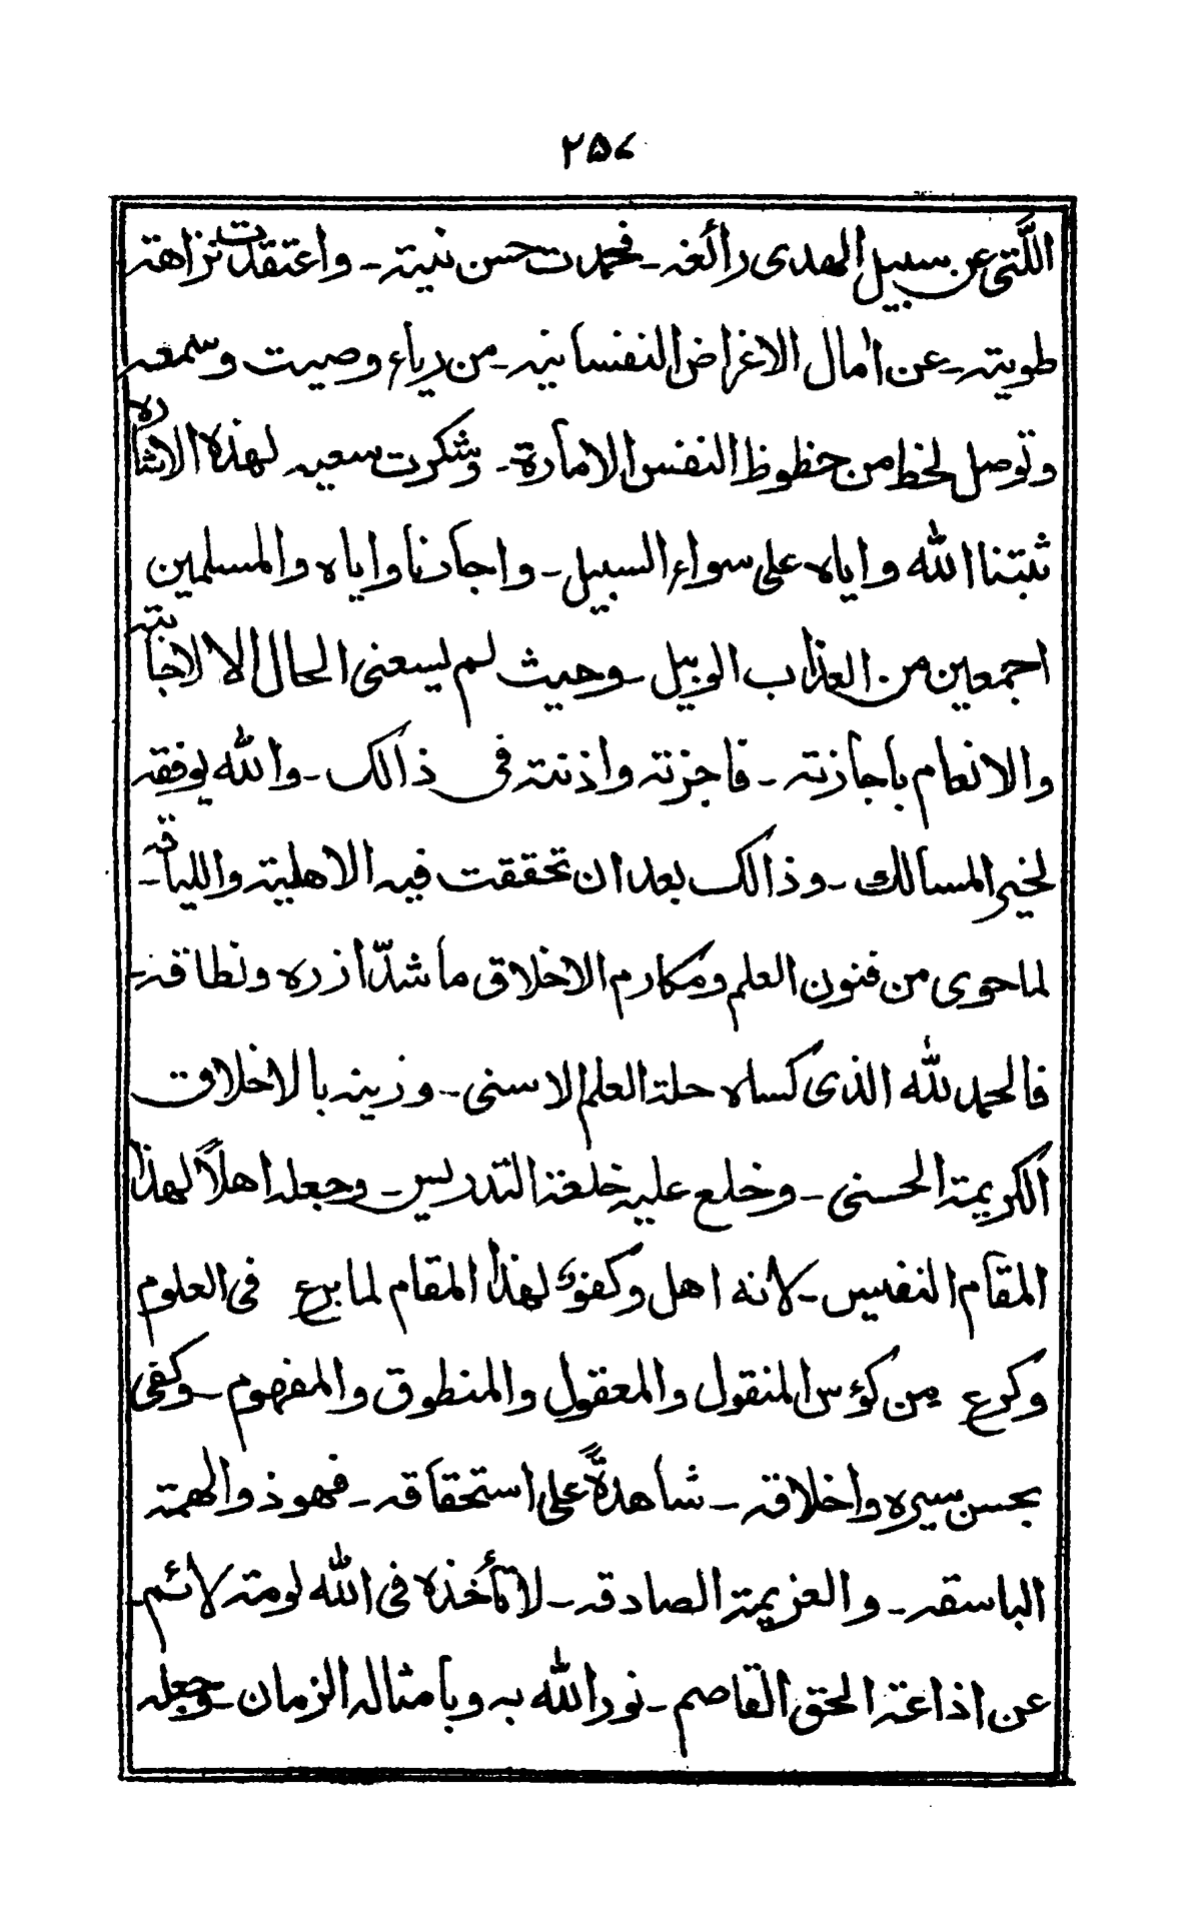 ۲۵۷
اللّتی عن سبیل الهدی رائغۃ ـ فحمدت حسن نیته ـ واعتقدت نزاهة
طویته ـ عن اٰمال الاغراض النفسانیه ـ من ریاء وصیت وسمعه
وتوصل لحظ من حظوظ النفس الامارة ـ وشکرت سعیه لهذه الاشاره
ثبتنا الله وایاه علی سواء السبیل ـ واجارنا وایاه والمسلمین
اجمعین من العذاب الوبیل ـ وحیث لم یسعنی الحال الا لاجابته
والانعام باجازته ـ فاجزته واذنته فی ذالک ـ والله یوفقه
لخیر المسالك ـ وذالک بعد ان تحققت فیه الاهلیة واللیاقه ـ
لما حوی من فنون العلم ومکارم الاخلاق ما شدّ ازره ونطاقه ـ
فالحمد لله الذی کساه حلة العلم الاسنی ـ وزینه بالاخلاق
الکریمة الحسنی ـ وخلع علیه خلعة التدریس ـ وجعله اهلاً لهذا
المقام النفیس ـ لانه اهل وکفوء لهذا المقام لما برع فی العلوم
وکرع من کؤس المنقول والمعقول والمنطوق والمفهوم ـ وکفی
بحسن سیره واخلاقه ـ شاهدةً علی استحقاقه ـ فهو ذو الهمة
الباسقه ـ والعزیمة الصادقه ـ لا تأخذه فی الله لومة لائم ـ
عن اذاعة الحق القاصم ـ نور الله به وبامثاله الزمان ـ وجعله